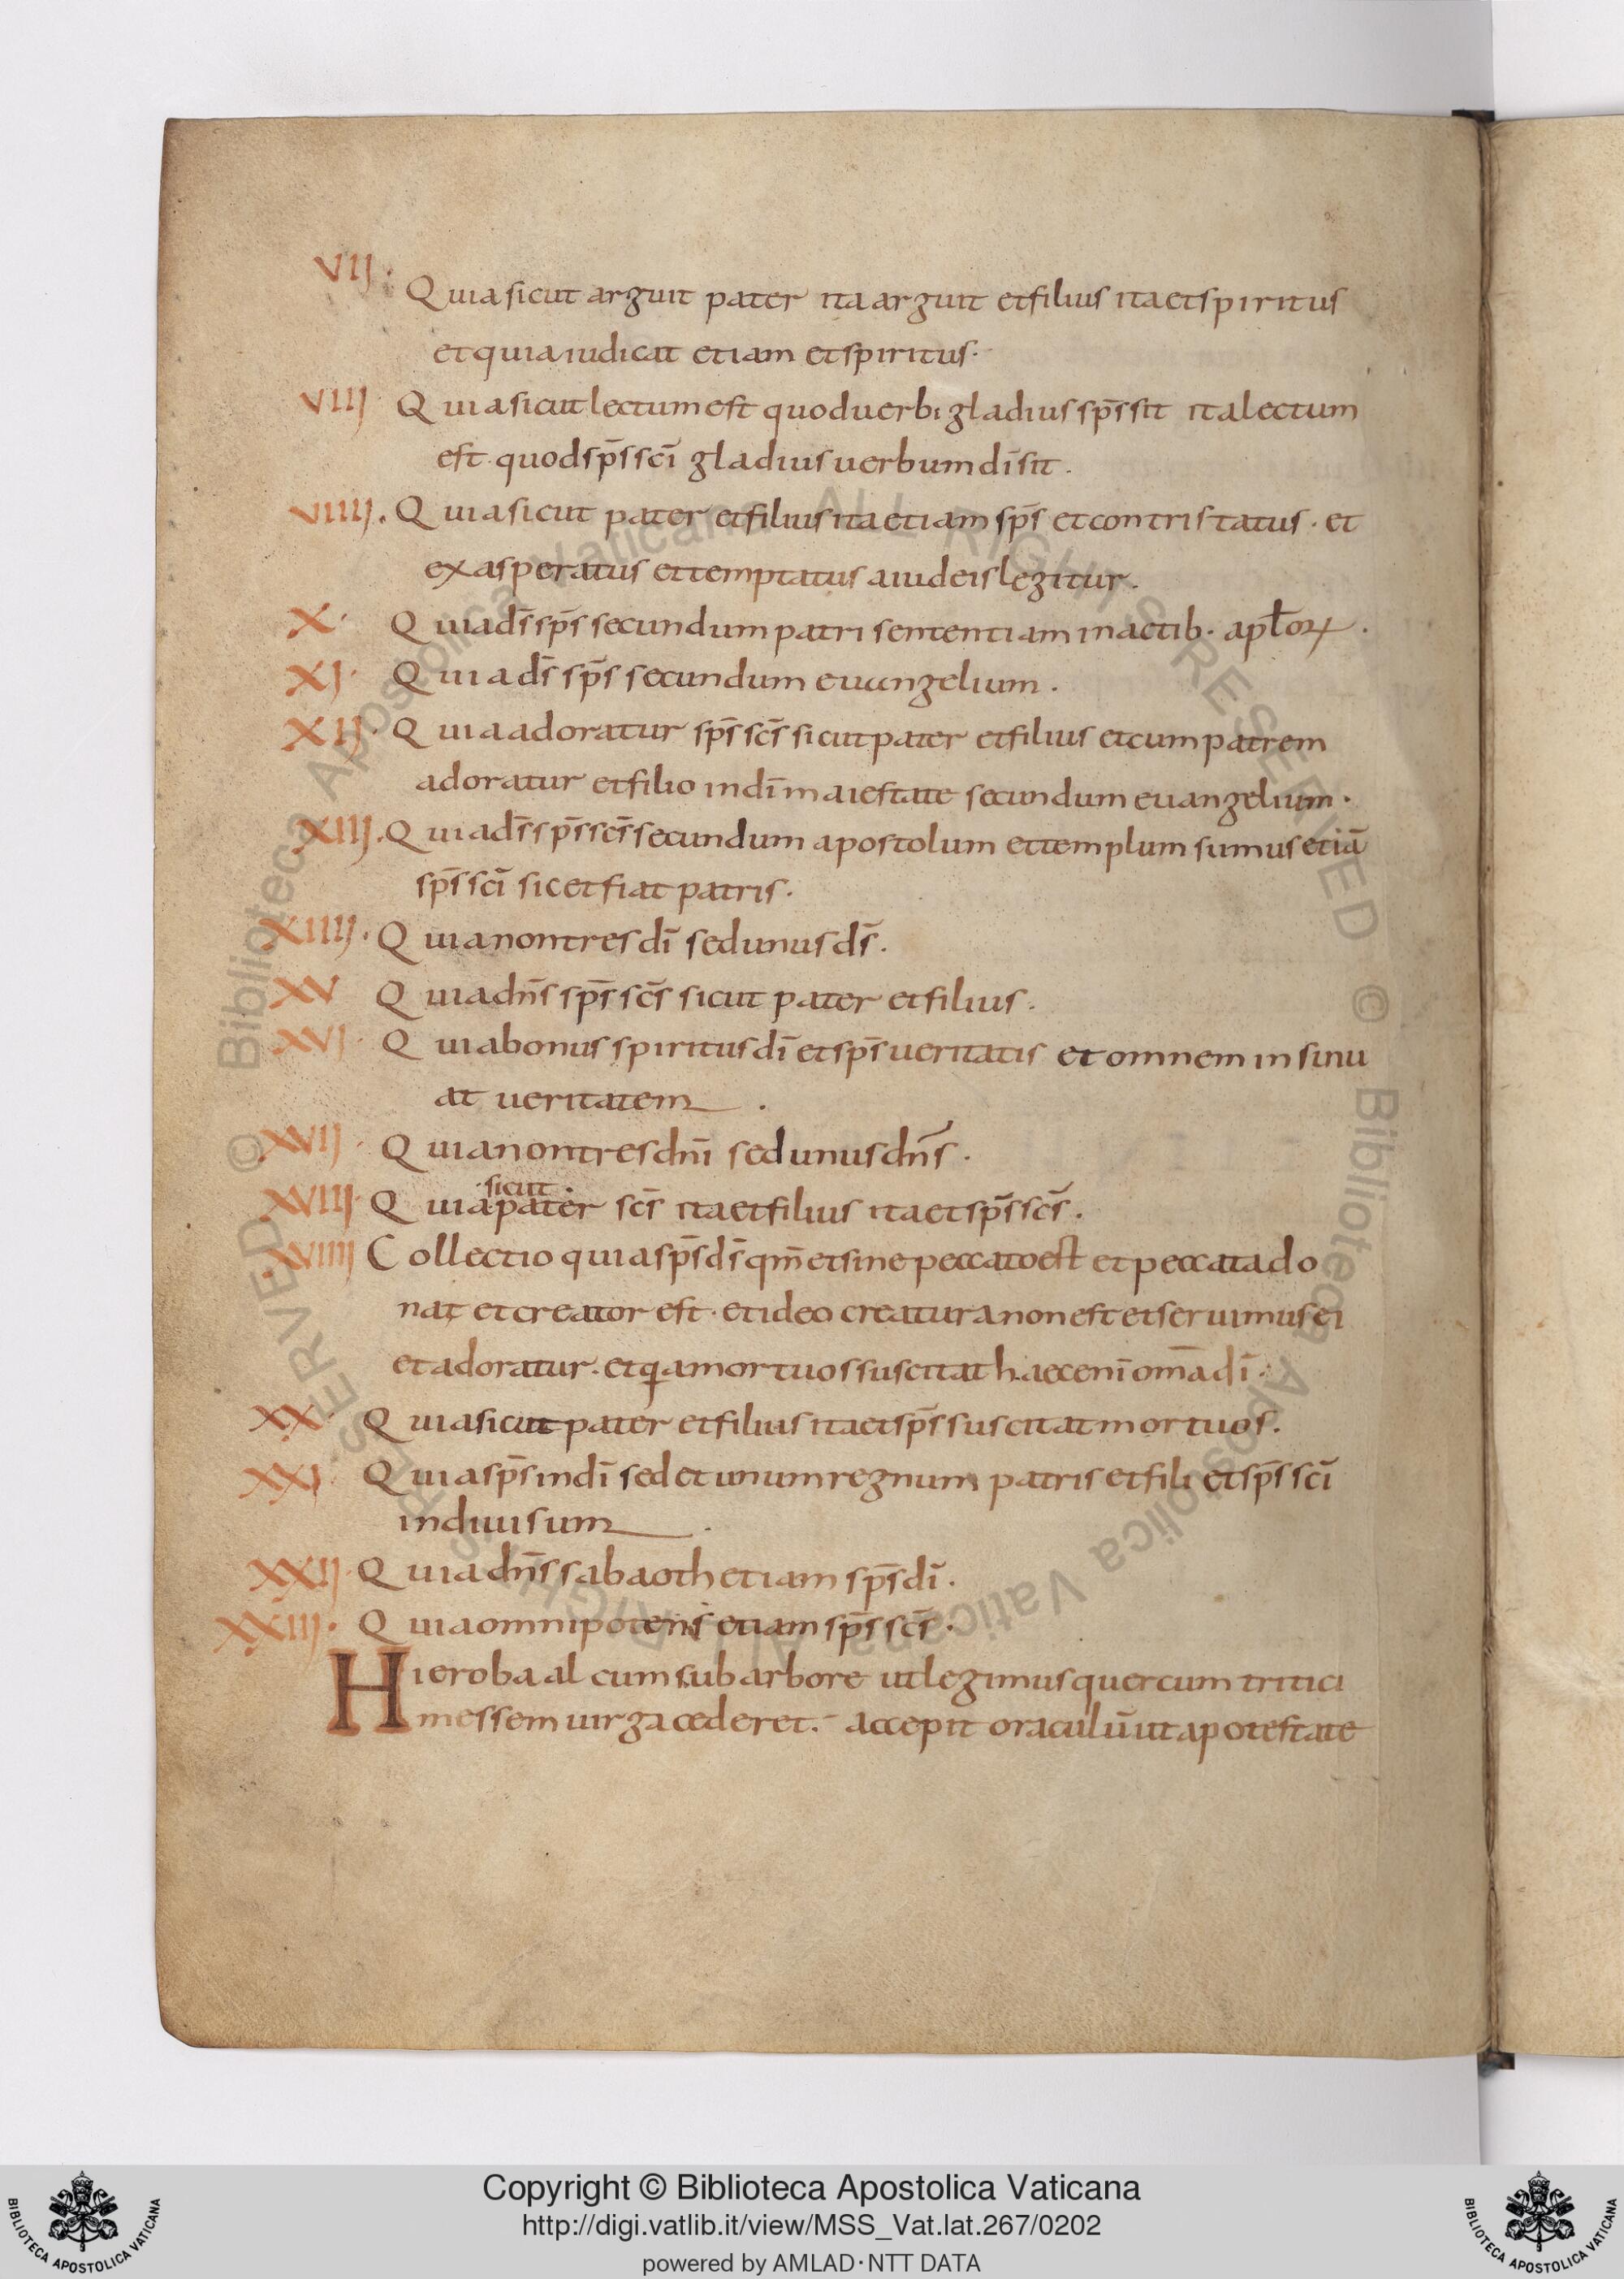 VII. Quia sicut arguit pater ita arguit et filius ita et spiritus
et quia iudicat etiam et spiritus.
VIII Quia sicut lectum est quod uerbi gladius sp̄s sit ita lectum
est quod sp̄s sc̄i gladius uerbum dī sit.
VIIII. Quia sicut pater et filius ita etiam sp̄s et contristatus · et
exasperatus et temptatus a iudeis legitur.
X. Quia ds̄ sp̄s secundum patri sententiam in actib. apl̄oꝝ.
XI. Quia ds̄ sp̄s secundum euangelium.
XII. Quia adoratur sp̄s sc̄s sicut pater et filius et cum patrem
adoratur et filio in dī maiestate secundum euangelium.
XIII. Quia ds̄ sp̄s sc̄s secundum apostolum et templum sumus etiā
sp̄s sc̄i sicet fiat patris.
XIIII. Quia non tres dī sed unus ds̄.
XV Quia dn̄s sp̄s sc̄s sicut pater et filius.
XVI. Quia bonus spiritus dī et sp̄s ueritatis et omnem insinu
at ueritatem.
XVII. Quia non tres dn̄i sed unus dn̄s.
·sicut·
XVIII Quia pater sc̄s ita et filius ita et sp̄s sc̄s.
XVIIII Collectio quia sp̄s ds̄ qm̄ et sine peccato est et peccata do
nat et creator est · et ideo creatura non est et seruimus ei
et adoratur. et qa mortuos suscitat haec enī om̄a dī.
XX. Quia sicut pater et filius ita et sp̄s suscitat mortuos.
XXI. Quia sp̄s in dī sed et unum regnum patris et fili et sp̄s sc̄i
indiuisum.
XXII. Quia dn̄s sabaoth etiam sp̄s dī.
XXIII. Quia omnipotens etiam sp̄s sc̄s.
Hierobaal cum sub arbore ut legimus quercum tritici
messem uirga cederet. accepit oraculū ut a potestate
Copyright © Biblioteca Apostolica Vaticana
http://digi.vatlib.it/view/MSS_Vat.lat.267/0202
powered by AMLAD·NTT DATA
BIBLIOTECA APOSTOLICA VATICANA
BIBLIOTECA APOSTOLICA VATICANA
© Biblioteca Apostolica Vaticana ALL RIGHTS RESERVED © Biblioteca Apostolica Vaticana ALL RIGHTS RESERVED